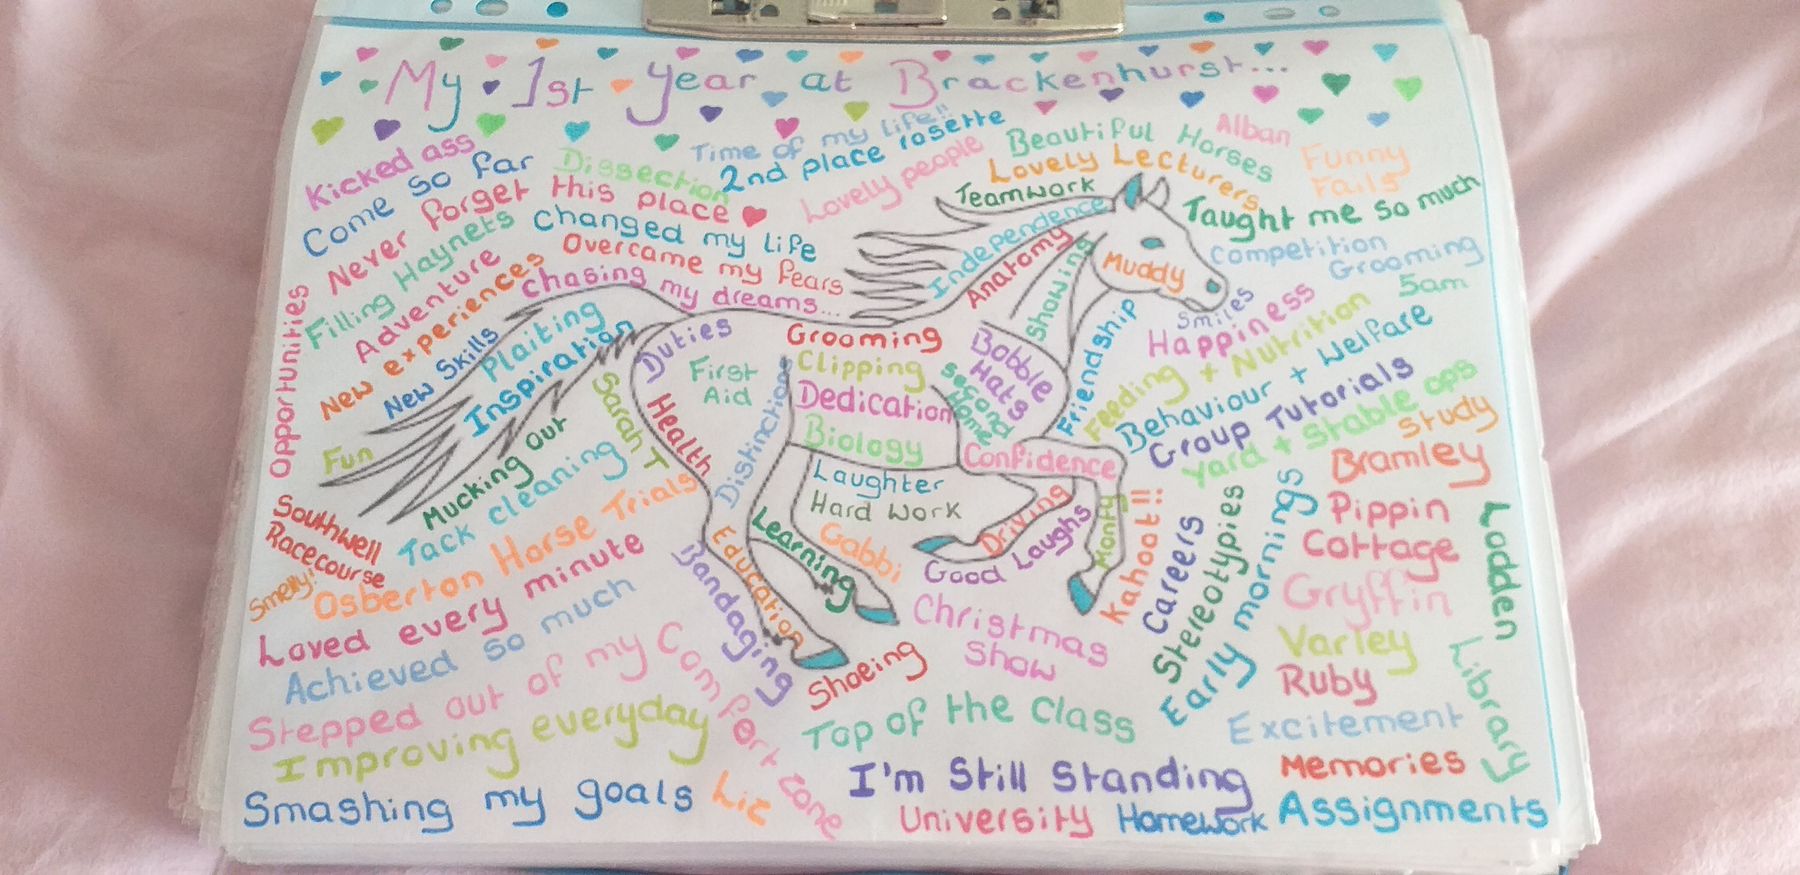 My 1st year at Brackenhurst...
Kicked ass
Come so far
Dissection
Time of my life!!
2nd place rosette
Lovely people
Beautiful Horses
Alban
Funny Fails
Lovely Lecturers
Teamwork
Taught me so much
Never forget this place
Changed my life
Filling Haynets
Adventure
Overcame my fears
Chasing my dreams...
New experiences
New Skills
Opportunities
Plaiting
Inspiration
Independence
Anatomy
Showing
Muddy
Competition Grooming
5am
Smiles
Happiness
Friendship
Feeding + Nutrition
Behaviour + Welfare
Group Tutorials
Yard + Stable ops
Study
Duties
First Aid
Grooming
Clipping
Dedication
Biology
Bobble Hats
Second Home
Confidence
Laughter
Hard Work
Health
Distinction
Sarah T
Fun
Mucking out
Tack cleaning
Southwell Racecourse
Smelly!
Osberton Horse Trials
Loved every minute
Achieved so much
Learning
Education
Gabbi
Driving
Good Laughs
Monty
Kahoot!!!
Careers
Stereotypies
Early mornings
Bramley
Pippin
Cottage
Gryffin
Varley
Ruby
Lodden
Library
Bandaging
Shoeing
Christmas Show
Stepped out of my Comfort zone
Improving everyday
Top of the class
Excitement
Smashing my goals
Liz
I'm Still Standing
Memories
University
Homework
Assignments